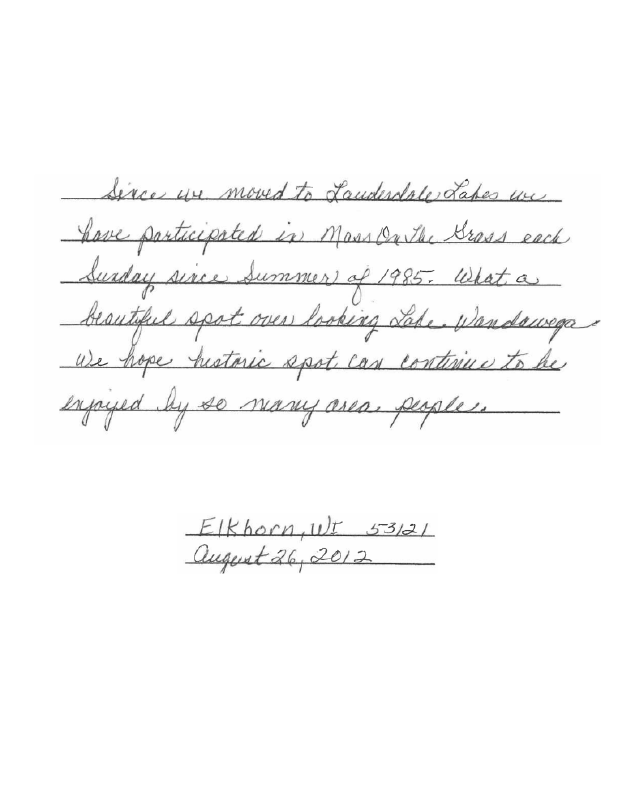 Since we moved to Lauderdale Lakes we
have participated in Mass On The Grass each
Sunday since Summer of 1985. What a
beautiful spot over looking Lake Wandawega.
We hope historic spot can continue to be
enjoyed by so many area people.
Elkhorn, WI 53121
August 26, 2012